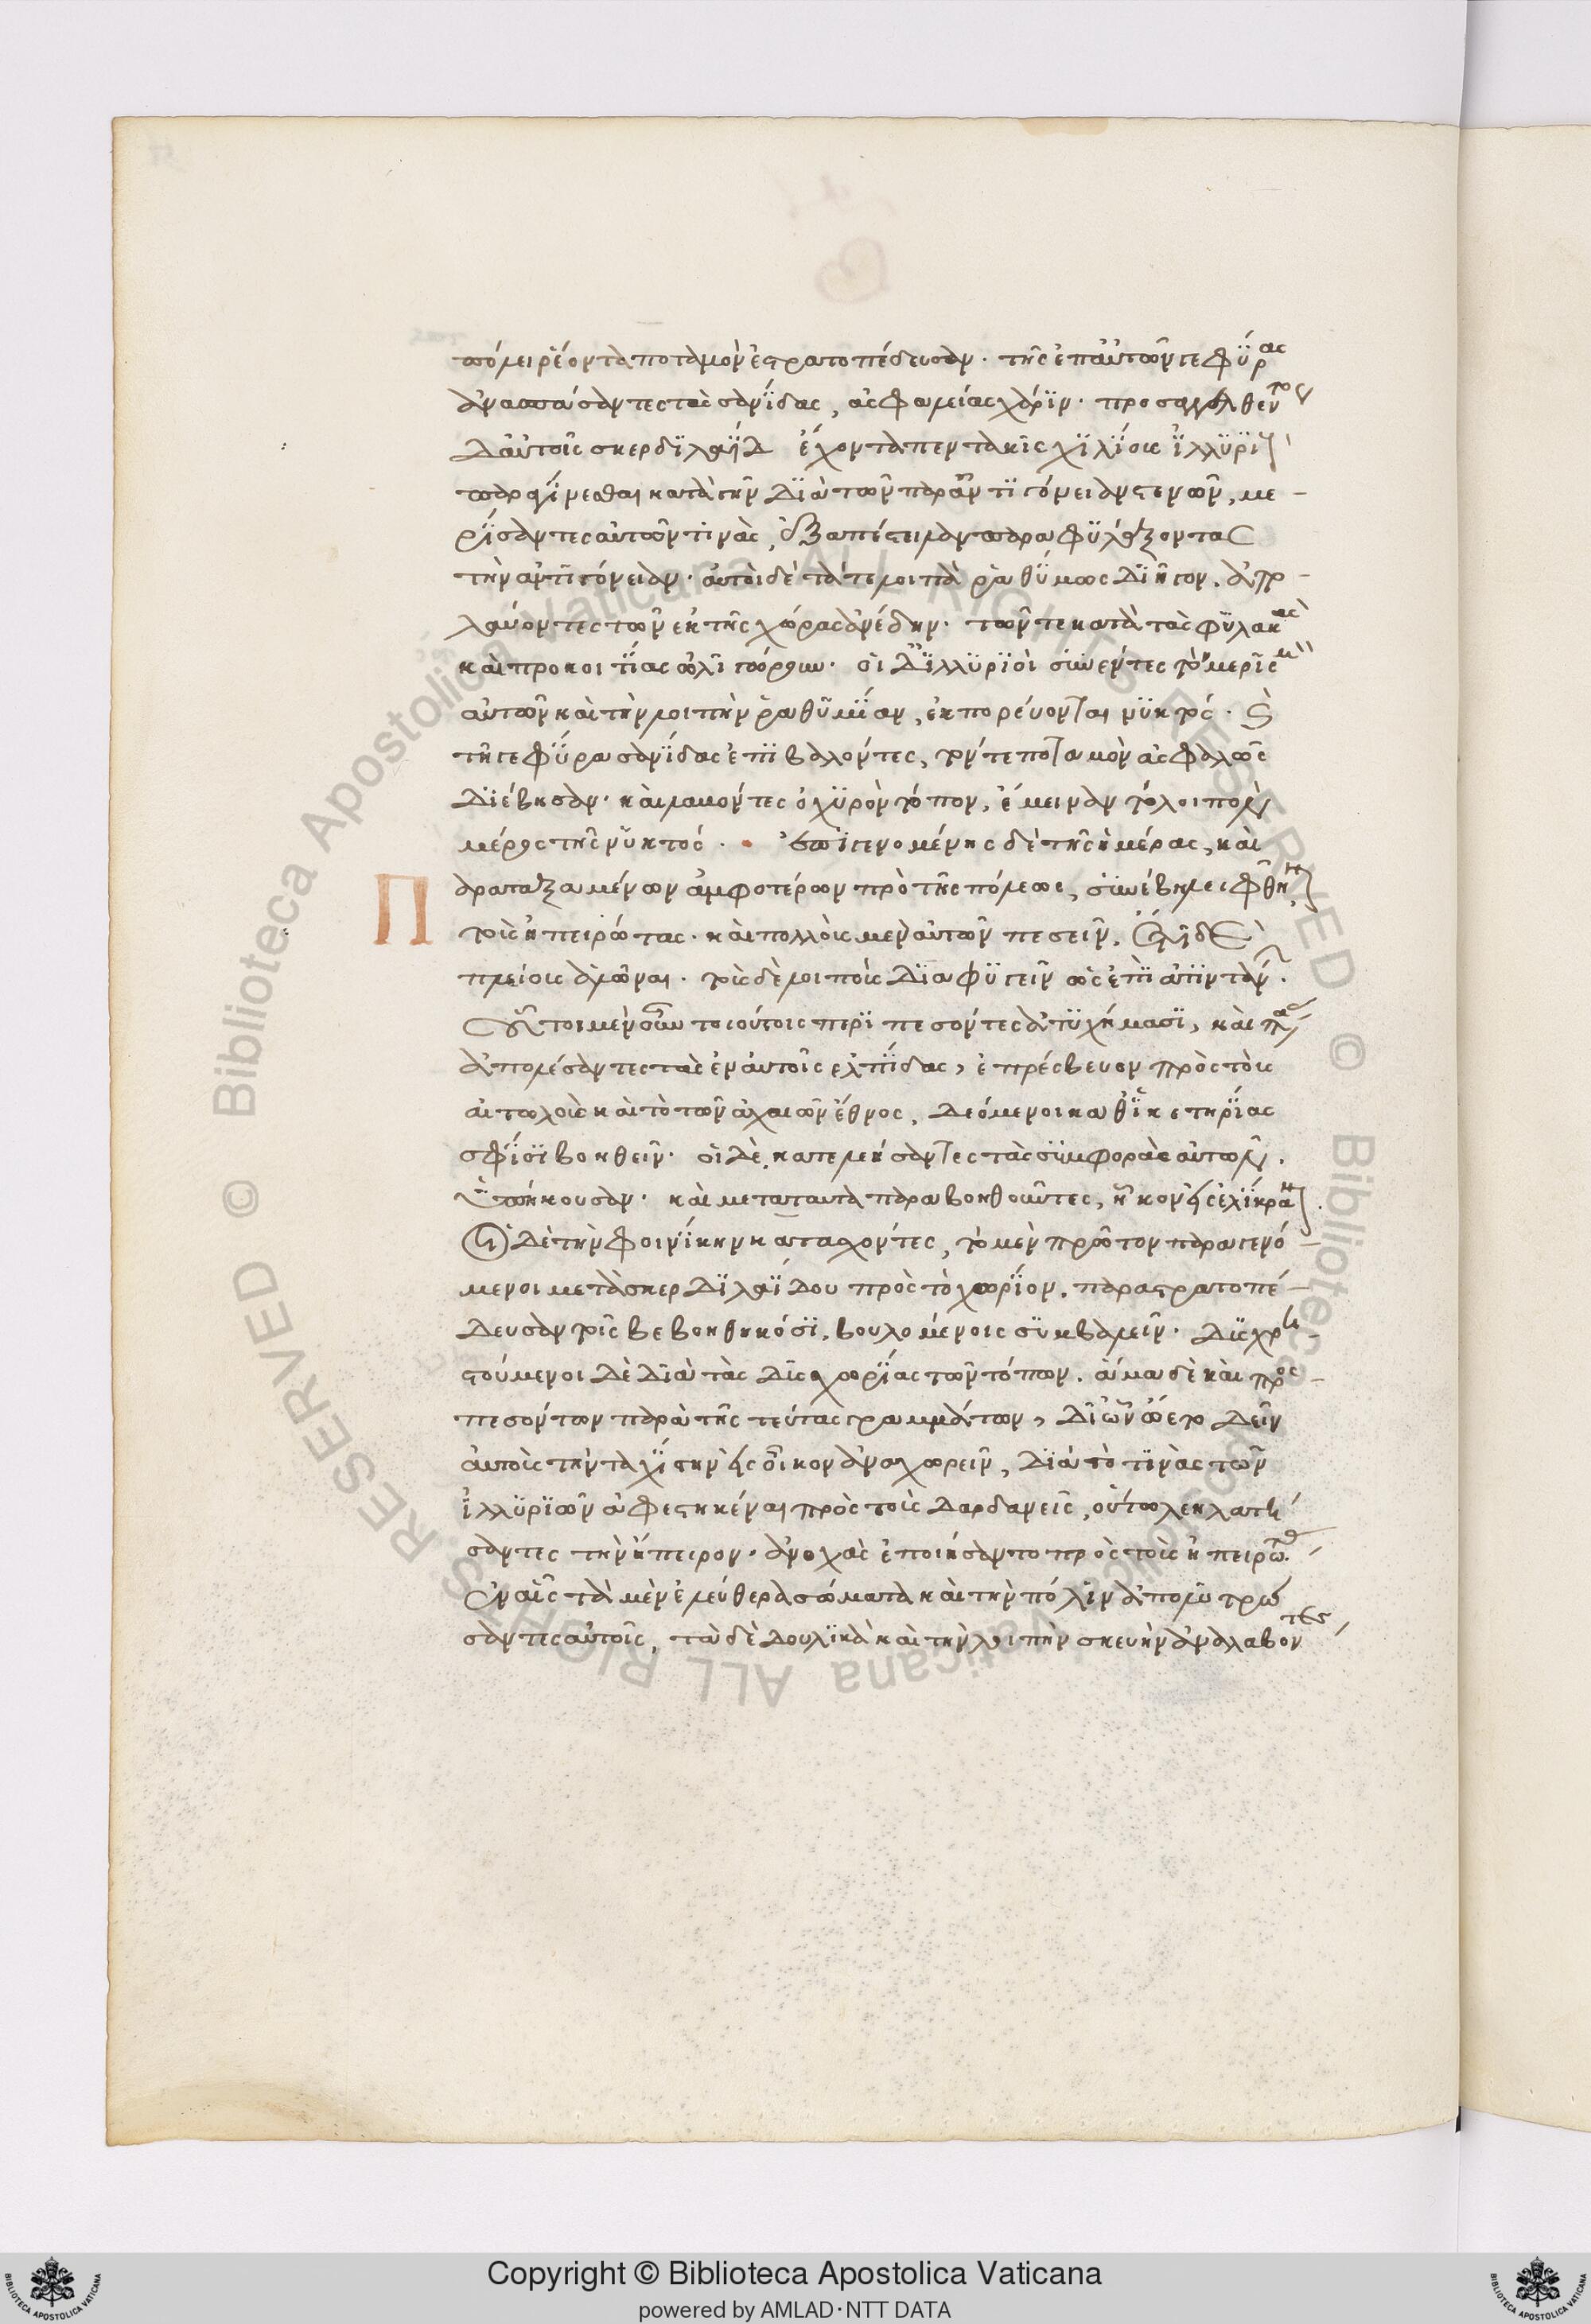 πόλει ῥέοντα ποταμὸν ἐστρατοπέδευσαν· τῆς ἐπ αὐτῶν γεφύρας
ἀνασπάσαντες τὰς σανίδας, ἀσφαλείας χάριν· προσαγγελθέντος
δ αὐτοῖς σκερδιλαίδ ἔχοντα πεντακισχιλίους ἰλλυρι
παραγίνεσθαι κατὰ γῆν διὰ τῶν παρ ἀντιγόνειαν στενῶν, με-
ρίσαντες αὐτῶν τινὰς, ἐξαπέστειλαν παραφυλάξοντας
τὴν ἀντιγόνειαν· αὐτοὶ δὲ τά τε λοιπὰ ῥαθύμως διῆγον, ἀπο-
λαύοντες τῶν ἐκ τῆς χώρας ἀνέδην· τῶν τε κατὰ τὰς φυλακὰς
καὶ προκοιτίας ὠλιγώρουν· οἱ δ ἰλλυριοὶ συνέντες τὸν μερισμὸν
αὐτῶν καὶ τὴν λοιπὴν ῥαθυμίαν, ἐκπορεύονται νυκτός· καὶ
τῇ γεφύρᾳ σανίδας ἐπιβαλόντες, τόν τε ποταμὸν ἀσφαλῶς
διέβησαν· καὶ λαβόντες ὀχυρὸν τόπον, ἔμειναν τὸ λοιπὸν
μέρος τῆς νυκτός· ἐπιγενομένης δὲ τῆς ἡμέρας, καὶ
Παραταξαμένων ἀμφοτέρων πρὸ τῆς πόλεως, συνέβη λειφθῆναι
τοὺς ἠπειρώτας· καὶ πολλοὺς μὲν αὐτῶν πεσεῖν, ἔτι δὲ
πλείους ἁλῶναι· τοὺς δὲ λοιποὺς διαφυγεῖν ὡς ἐπ ἀτιντάν.
Οὗτοι μὲν οὖν τοιούτοις περιπεσόντες ἀτυχήμασι, καὶ πάσ
ἀπολέσαντες τὰς ἐν αὐτοῖς ἐλπίδας, ἐπρέσβευον πρὸς τοὺς
αἰτωλοὺς καὶ τὸ τῶν ἀχαιῶν ἔθνος, δεόμενοι καθ ἱκετηρίας
σφίσι βοηθεῖν· οἱ δὲ, κατελεήσαντες τὰς συμφορὰς αὐτῶν,
ὑπήκουσαν· καὶ μετὰ ταῦτα παραβοηθοῦντες, ἧκον εἰς ἑλίκραν.
Οἱ δὲ τὴν φοινίκην κατασχόντες, τὸ μὲν πρῶτον παραγενό-
μενοι μετὰ σκερδιλαίδου πρὸς τὸ χωρίον, παραστρατοπέ-
δευσαν τοῖς βεβοηθηκόσι, βουλομένοις συμβαλεῖν· δυσχρη-
στούμενοι δὲ διὰ τὰς δυσχωρίας τῶν τόπων, ἅμα δὲ καὶ προσ-
πεσόντων παρὰ τῆς τεύτας γραμμάτων, δι ὧν ᾤετο δεῖν
αὐτοὺς τὴν ταχίστην εἰς οἶκον ἀναχωρεῖν, διὰ τό τινας τῶν
ἰλλυριῶν ἀφεστηκέναι πρὸς τοὺς δαρδανεῖς, οὕτω λεηλατή
σαντες τὴν ἤπειρον· ἀνοχὰς ἐποιήσαντο πρὸς τοὺς ἠπειρώτας.
Ἐν αἷς τὰ μὲν ἐλεύθερα σώματα καὶ τὴν πόλιν ἀπολυτρώ
σαντες αὐτοῖς, τὰ δὲ δουλικὰ καὶ τὴν λοιπὴν σκευὴν ἀναλαβόντες
Copyright © Biblioteca Apostolica Vaticana
powered by AMLAD·NTT DATA